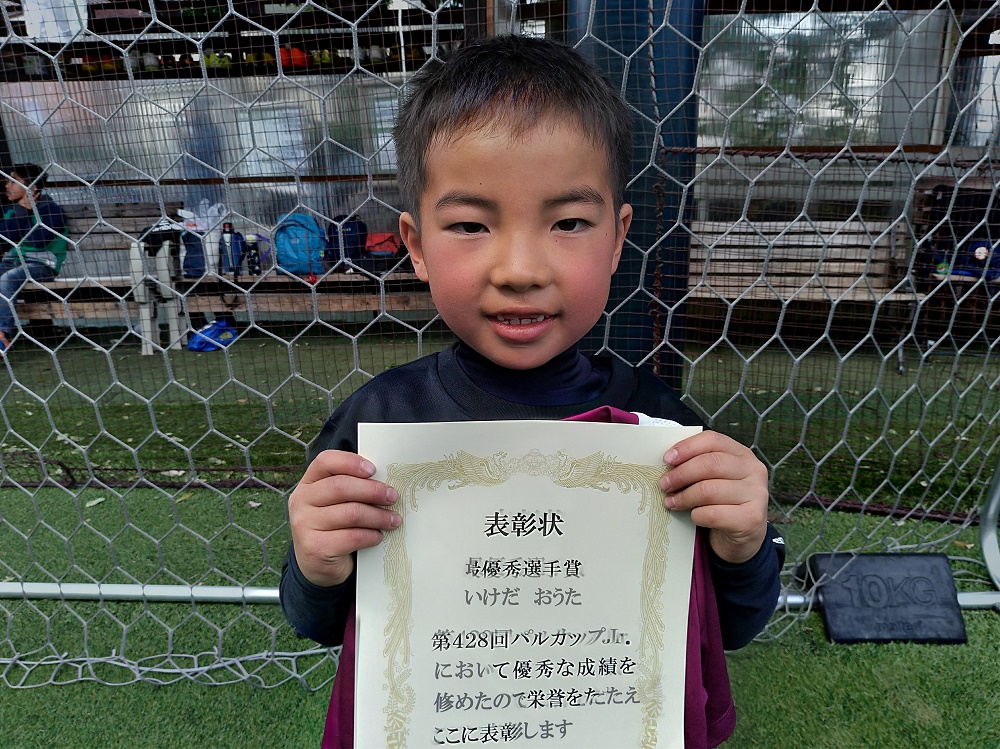 表彰状
最優秀選手賞
いけだ おうた
第428回バルカップJr.
において優秀な成績を
修めたので栄誉をたたえ
ここに表彰します
10KG